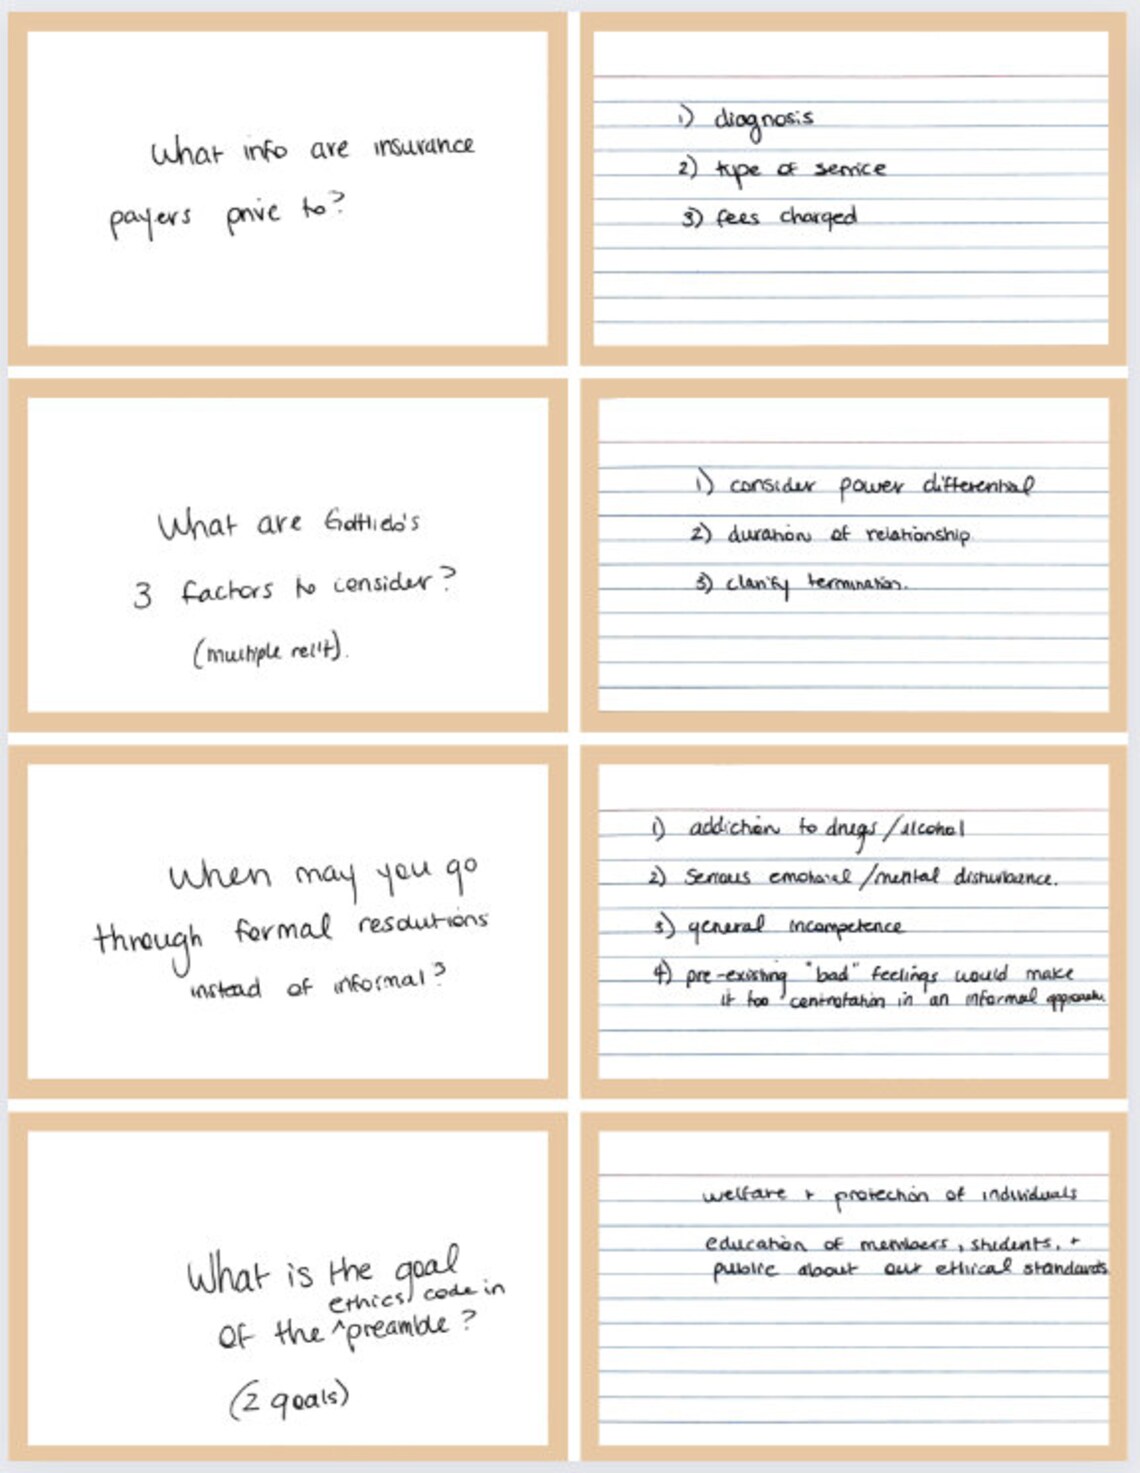 What info are insurance
payers privie to?
1) diagnosis
2) type of service
3) fees charged
What are Gottlieb's
3 factors to consider?
(multiple rel't).
1) consider power differential
2) duration of relationship
3) clarify termination.
When may you go
through formal resolutions
instead of informal?
1) addiction to drugs/alcohol
2) serious emotional/mental disturbance.
3) general incompetence
4) pre-existing "bad" feelings would make
it too in an informal approach.
What is the goal
ethics code in
of the ^preamble?
(2 goals)
welfare + protection of individuals
education of members, students, +
public about our ethical standards